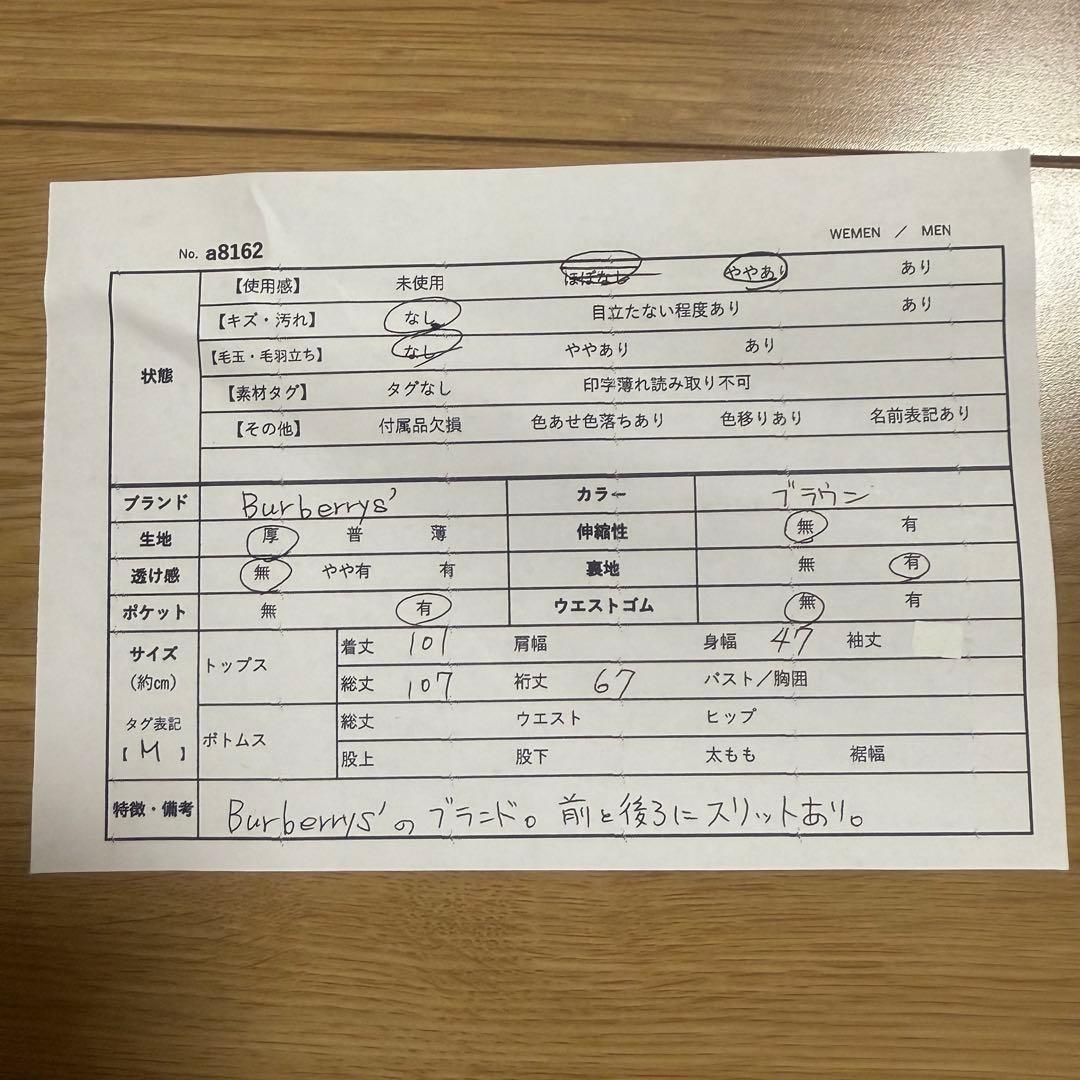 WEMEN / MEN
No. a8162
状態
【使用感】 未使用 ほぼなし ややあり あり
【キズ・汚れ】 なし 目立たない程度あり あり
【毛玉・毛羽立ち】 なし ややあり あり
【素材タグ】 タグなし 印字薄れ読み取り不可
【その他】 付属品欠損 色あせ色落ちあり 色移りあり 名前表記あり
ブランド Burberrys' カラー ブラウン
生地 厚 普 薄 伸縮性 無 有
透け感 無 やや有 有 裏地 無 有
ポケット 無 有 ウエストゴム 無 有
サイズ (約cm) トップス 着丈 101 肩幅 身幅 47 袖丈
総丈 107 裄丈 67 バスト/胸囲
タグ表記 【M】 ボトムス 総丈 ウエスト ヒップ
股上 股下 太もも 裾幅
特徴・備考 Burberrys'のブランド。前と後ろにスリットあり。